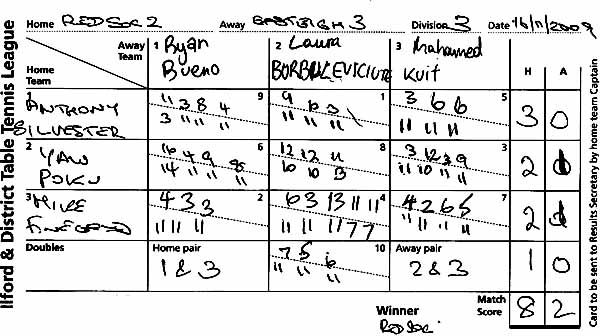 Ilford & District Table Tennis League
Home RED SOC 2 Away EASTEIGH 3 Division 3 Date 16/11/2009
Away Team
Home Team
1 Ryan Bueno
2 Laura BURBULEVICIUTE
3 Mahamed Kuit
H A
1 ANTHONY SILVESTER
9
11 3 8 4
3 11 11 11
1
9 10 3
11 11 11
5
3 6 6
11 11 11
3 0
2 YAW POKU
6
16 4 9 8
14 11 11 11
8
12 12 11
10 10 3
3
3 12 3 9
11 10 11 11
2 1
3 MIKE
2
4 3 3
11 11 11
4
6 3 13 11 11
11 11 11 7 7
7
4 2 6 5
11 11 11
2 1
Doubles
Home pair
1 & 3
10
7 5 6
11 11 11
Away pair
2 & 3
1 0
Winner
Red Soc
Match Score
8 2
Card to be sent to Results Secretary by home team Captain